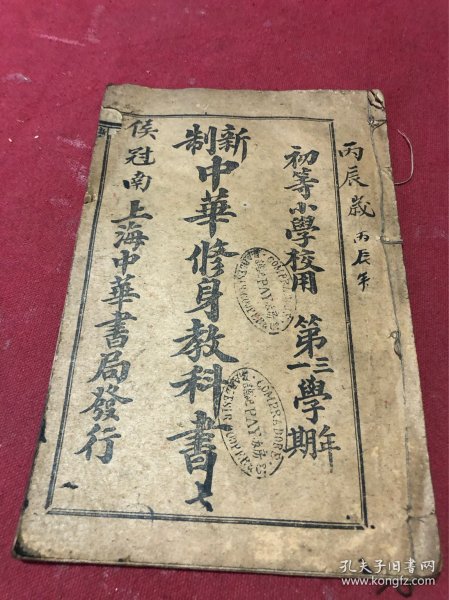 丙辰歲 丙辰年
初等小學校用 第三學年 第一學期
新制中華修身教科書 七
上海中華書局發行
侯冠南
COMPRADORE
PAY
COMPRADORE
PAY
孔夫子旧书网
www.kongfz.com